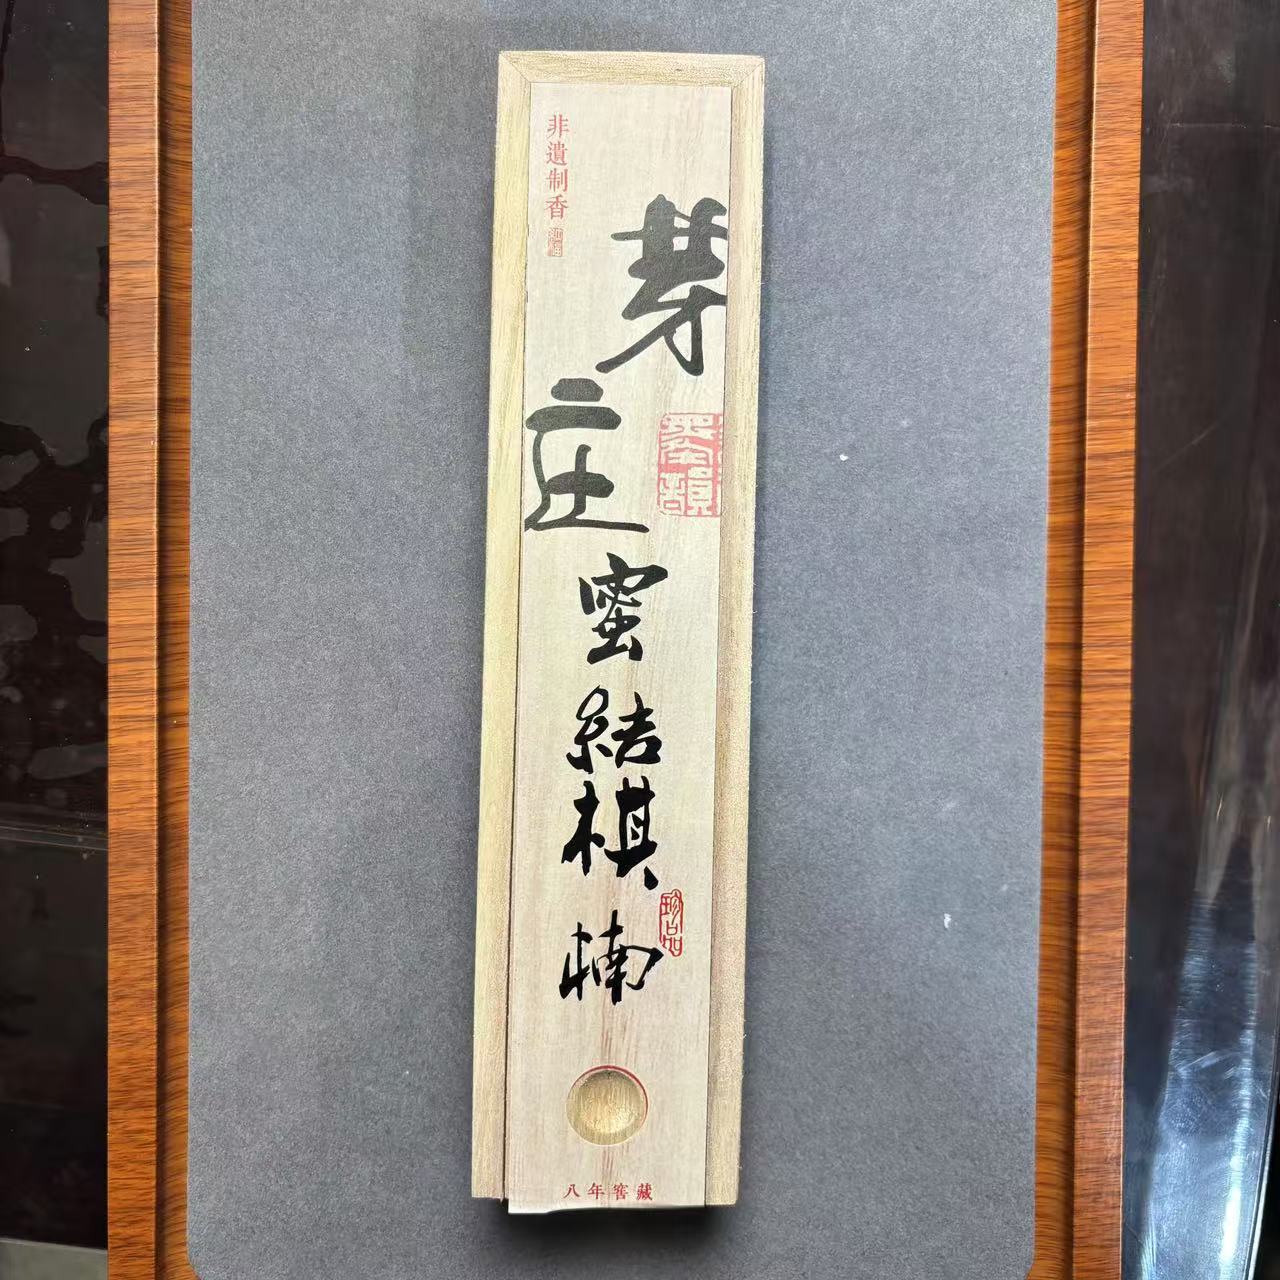 非遺制香
芽莊
蜜結棋楠
珍品
八年窖藏